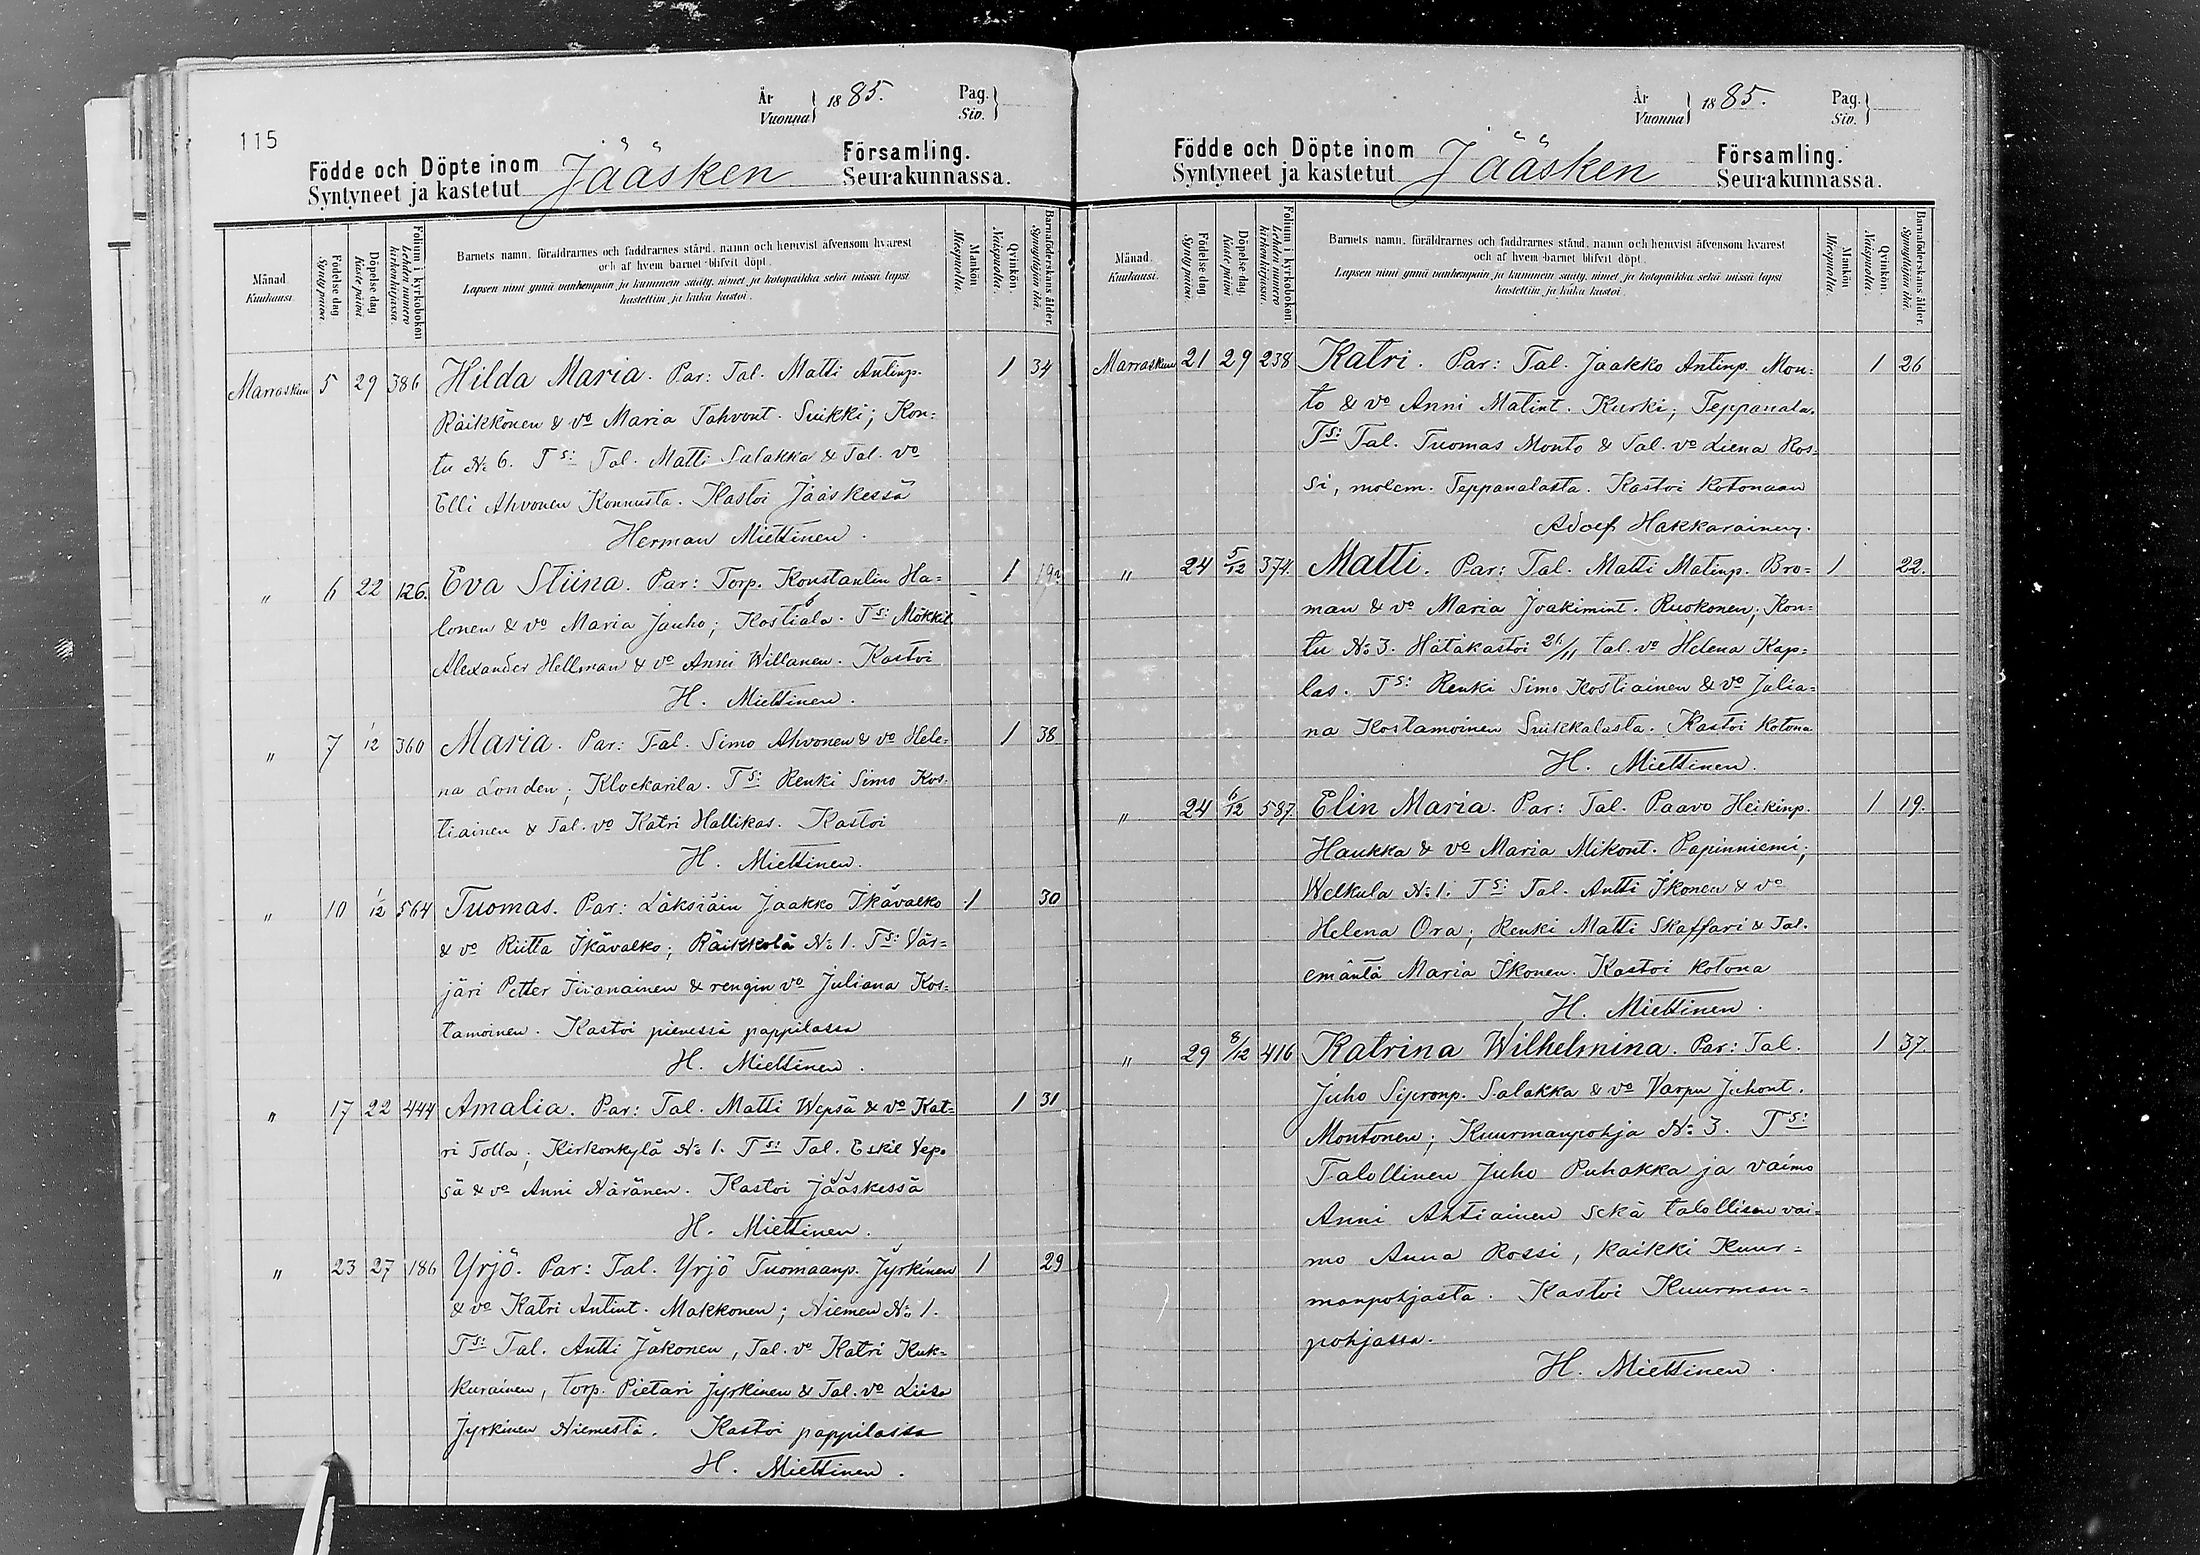 115
År
Vuonna } 1885. Pag.
Siv. }
Födde och Döpte inom Jääsken Församling.
Syntyneet ja kastetut Seurakunnassa.
Månad. Kuukausi.
Födelse dag. Synty päivä.
Döpelse dag Kaste päivä
Folium i kyrkoboken. Lehden numero kirkonkirjassa.
Barnets namn, föräldrarnes och faddrarnes stånd, namn och hemvist äfvensom hvarest
och af hvem barnet blifvit döpt.
Lapsen nimi ynnä vanhempain ja kummein sääty, nimet ja kotopaikka sekä missä lapsi
kastettiin ja kuka kastoi.
Mankön Miespuolia.
Qvinkön. Naispuolia.
Barnaföderskans ålder. Synnyttäjän ikä.
Marraskuu 5 29 386 Hilda Maria. Par: Tal. Matti Antinp. 1 34
Räikkönen & vo Maria Tahvont. Suikki; Kon=
tu No 6. Ts: Tal. Matti Salakka & Tal. vo
Elli Ahvonen Konnusta. Kastoi Jääskessä
Herman Miettinen.
" 6 22 126. Eva Stiina. Par: Torp. Konstantin Ha= 1
lonen & vo Maria Jauho; Kostiala. Ts: Mökkil.
Alexander Hellman & vo Anni Willanen. Kastoi
H. Miettinen.
" 7 1/12 360 Maria. Par: Tal. Simo Ahvonen & vo Hele- 1 38
na Londen; Klockarila. Ts: Renki Simo Kos-
tiainen & Tal. vo Katri Hallikas. Kastoi
H. Miettinen.
" 10 1/12 564 Tuomas. Par: Läksiäin Jaakko Ikävalko 1 30
& vo Riitta Ikävalko; Räikkölä No 1. Ts: Vär=
järi Petter Tiianainen & rengin vo Juliana Kos=
tamoinen. Kastoi pienessä pappilassa
H. Miettinen.
" 17 22 444 Amalia. Par: Tal. Matti Wepsä & vo Kat= 1 31
ri Tolla; Kirkonkylä No 1. Ts: Tal. Eskil Vep=
sä & vo Anni Näränen. Kastoi Jääskessä
H. Miettinen.
" 23 27 186 Yrjö. Par: Tal. Yrjö Tuomaanp. Jyrkinen 1 29
& vo Katri Antint. Makkonen; Niemen No 1.
Ts: Tal. Antti Jäkonen, Tal. vo Katri Kuk=
kurainen, Torp. Pietari Jyrkinen & Tal. vo Liisa
Jyrkinen Niemestä. Kastoi pappilassa
H. Miettinen.
År
Vuonna } 1885. Pag.
Siv. }
Födde och Döpte inom Jääsken Församling.
Syntyneet ja kastetut Seurakunnassa.
Månad. Kuukausi.
Födelse dag. Synty päivä.
Döpelse dag. Kaste päivä
Folium i kyrkoboken. Lehden numero kirkonkirjassa.
Barnets namn, föräldrarnes och faddrarnes stånd, namn och hemvist äfvensom hvarest
och af hvem barnet blifvit döpt.
Lapsen nimi ynnä vanhempain ja kummein sääty, nimet ja kotopaikka sekä missä lapsi
kastettiin ja kuka kastoi.
Mankön Miespuolia.
Qvinkön. Naispuolia.
Barnaföderskans ålder. Synnyttäjän ikä.
Marraskuu 21 29 238 Katri. Par: Tal. Jaakko Antinp. Mon= 1 26
to & vo Anni Matint. Kurki; Teppanala.
Ts: Tal. Tuomas Monto & Tal. vo Liena Ros-
si, molem. Teppanalasta. Kastoi kotonaan
Adolf Hakkarainen.
" 24 5/12 374. Matti. Par: Tal. Matti Matinp. Bro= 1 22.
man & vo Maria Joakimint. Ruokonen; Kon=
tu No 3. Hätäkastoi 26/11 tal. vo Helena Kap=
las. Ts: Renki Simo Kostiainen & vo Julia=
na Kostamoinen Suikkalasta. Kastoi kotona
H. Miettinen.
" 24 6/12 587. Elin Maria. Par: Tal. Paavo Heikinp. 1 19.
Haukka & vo Maria Mikont. Papinniemi;
Welkula No 1. Ts: Tal. Antti Ikonen & vo
Helena Ora; Renki Matti Skaffari & Tal.
emäntä Maria Ikonen. Kastoi kotona
H. Miettinen.
" 29 8/12 416 Katrina Wilhelmina. Par: Tal. 1 37.
Juho Sipronp. Salakka & vo Varpu Juhont.
Montonen; Kuurmanpohja No 3. Ts:
Talollinen Juho Puhakka ja vaimo
Anni Ahtiainen sekä talollisen vai=
mo Anna Rossi, kaikki Kuur=
manpohjasta. Kastoi Kuurman=
pohjassa.
H. Miettinen.